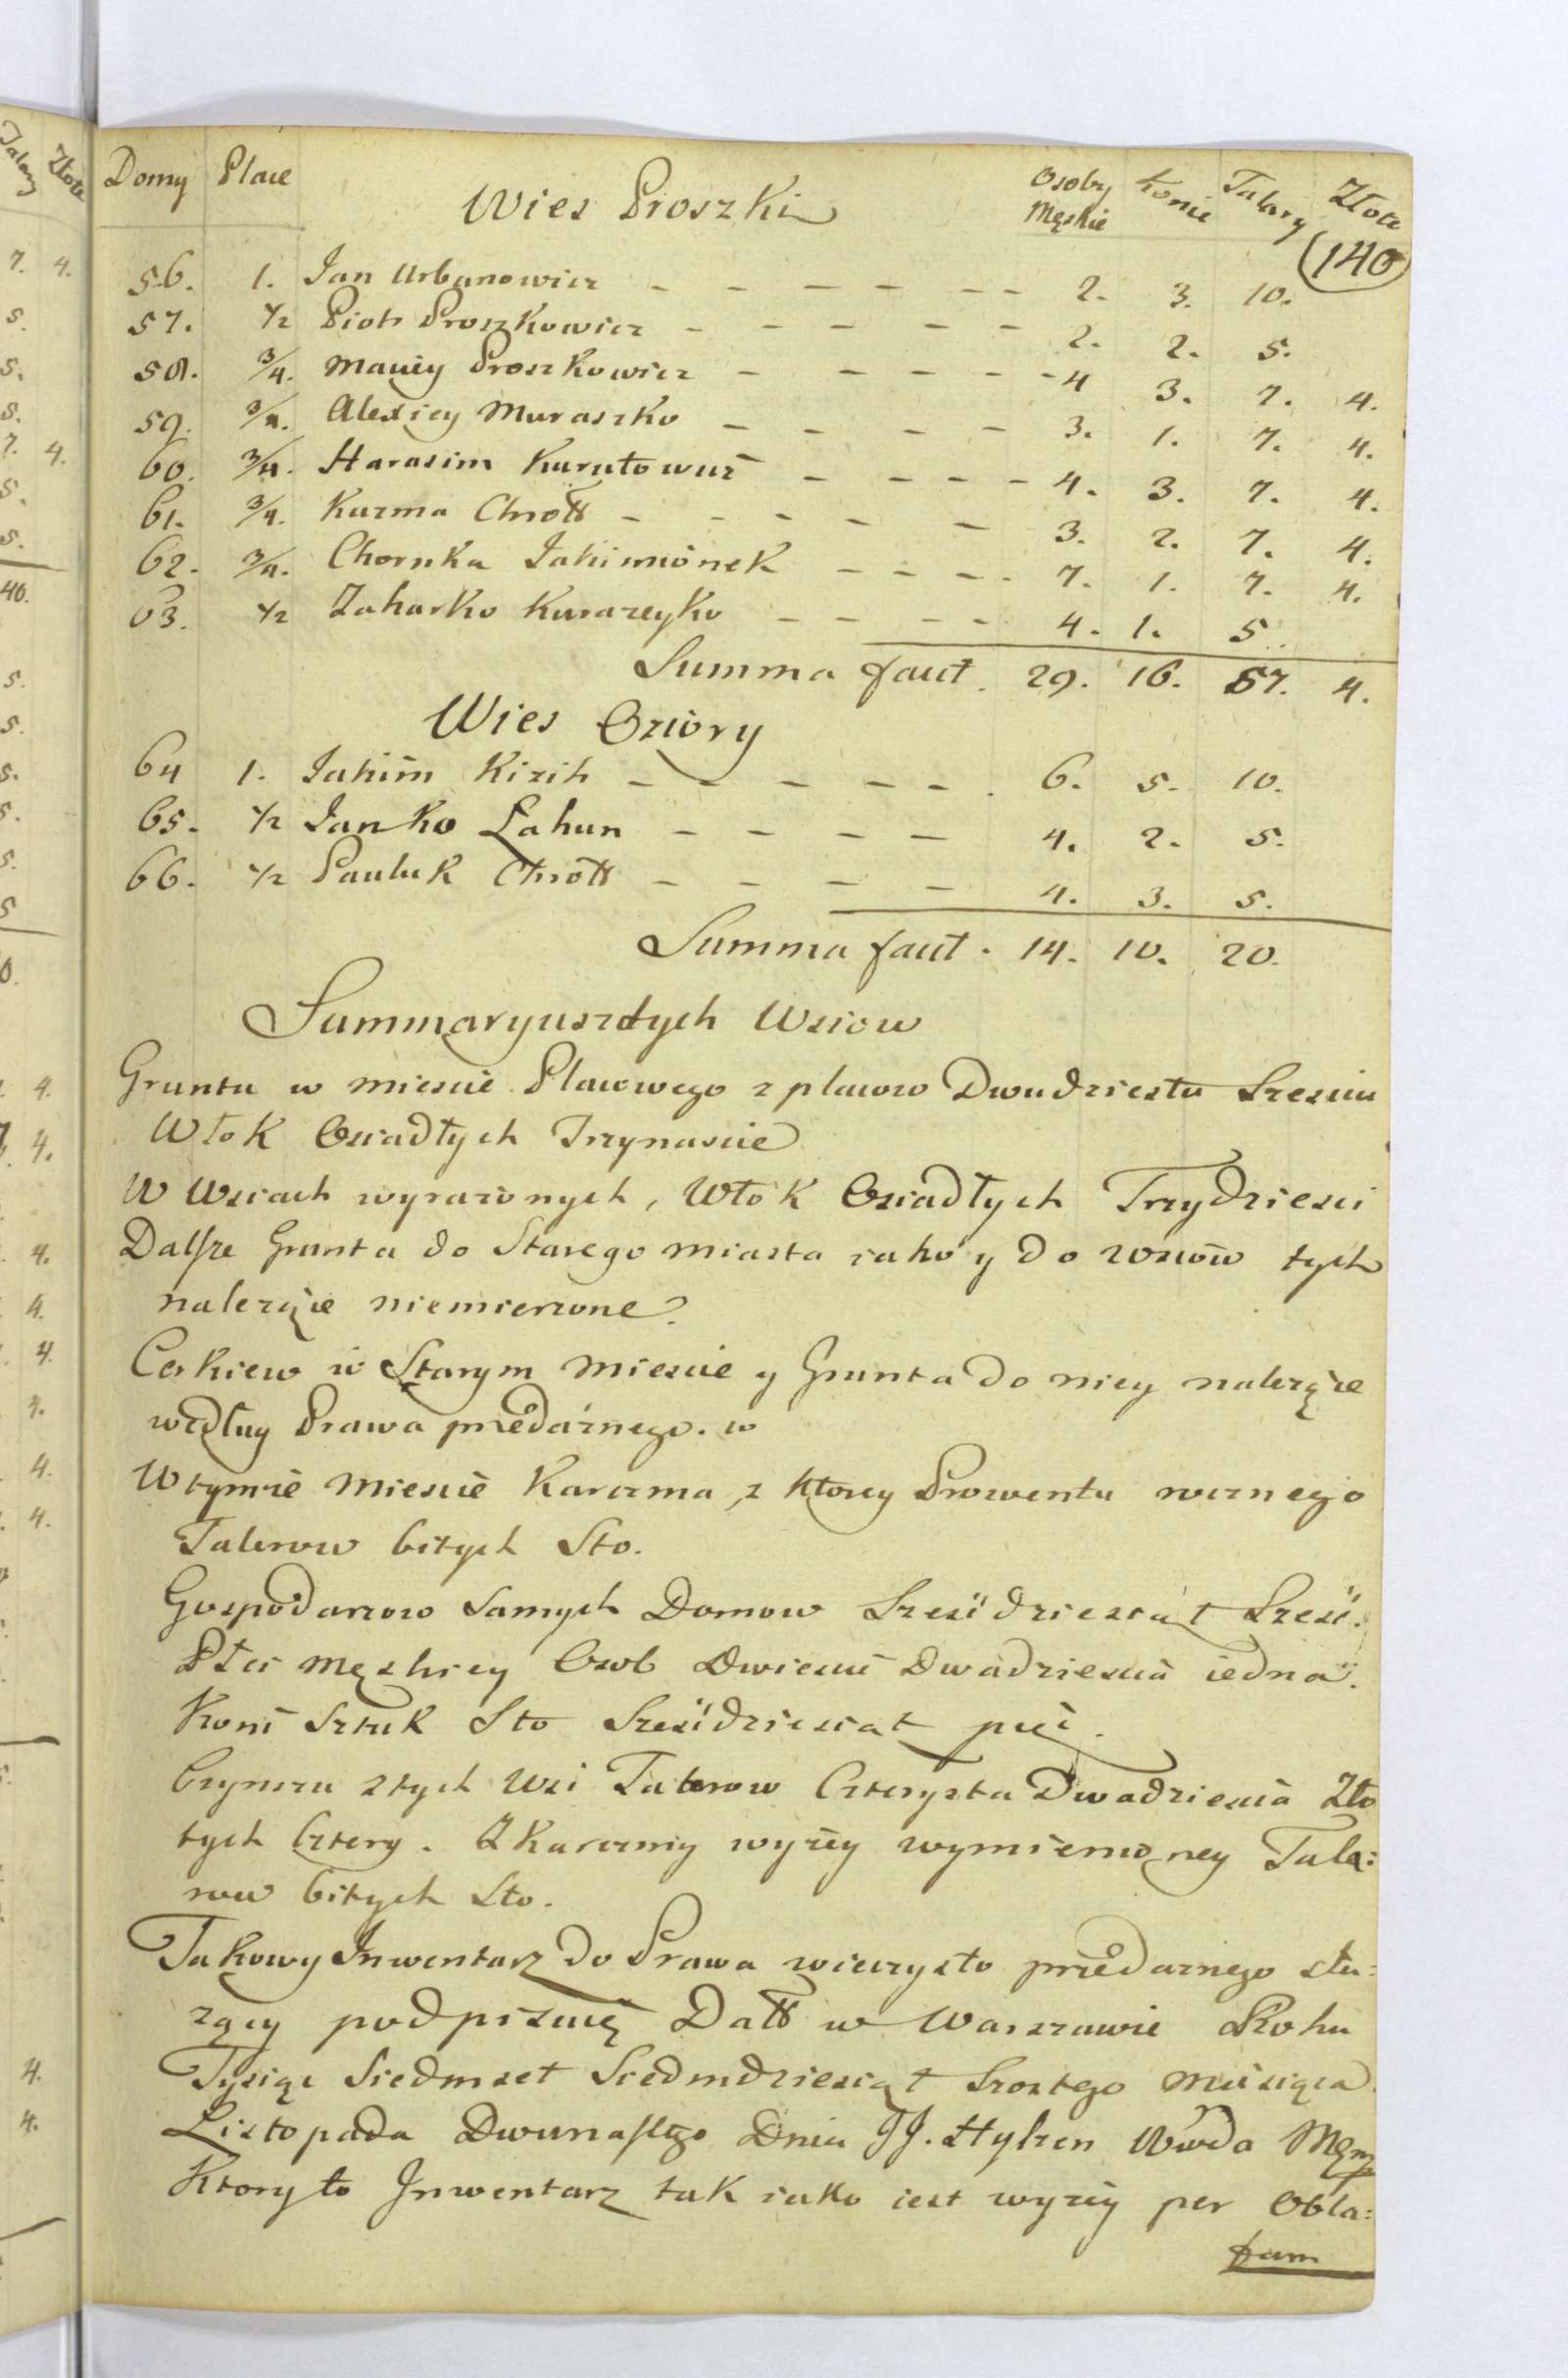 Domy Place Wies Proszki Osoby Męskie Konie Talary Złote
140
56. 1. Jan Urbanowicz - - - - - - 2. 3. 10.
57. 1/2 Piotr Proszkowicz - - - - - 2. 2. 5.
58. 3/4. Maciey Proszkowicz - - - - - 4 3. 7. 4.
59. 3/4. Alexiey Muraszko - - - - 3. 1. 7. 4.
60. 3/4. Harasim - - - - 4. 3. 7. 4.
61. 3/4. Kuzma Chrołł - - - - - 3. 2. 7. 4.
62. 3/4. Chornka - - - - 7. 1. 7. 4.
63. 1/2 Zaharko - - - - 4. 1. 5.
Summa facit. 29. 16. 57. 4.
Wies Oziory
64 1. Jakim Kizih - - - - - 6. 5. 10.
65. 1/2 Janko Łahun - - - - 4. 2. 5.
66. 1/2 Pauluk Chrołł - - - - 4. 3. 5.
Summa facit. 14. 10. 20.
Summaryusz tych Wsiow
Gruntu w miescie Placowego z placow Dwudziestu Szesciu
Włok Osiadłych Trzynascie
W Wsiach wyrażonych, Włok Osiadłych Trzydziesci
Dalsze Grunta do Starego miasta iako y do wsiow tych
należące niemierzone.
Cerkiew w Starym Miescie y Grunta do niey należące
według Prawa przedażnego.
W tymże Miescie Karczma, z ktorey Prowentu rocznego
Talerow bitych Sto.
Gospodarzow samych Domow Sześćdziesiąt Sześć.
Płci męskiey Osob Dwiescie Dwadziescia iedna.
Koni Sztuk Sto Sześćdziesiąt pięć.
Czynszu z tych Wsi Talerow Czterysta Dwadziescia Zło
tych Cztery. Z Karczmy wyżey wymienioney Tala:
row bitych Sto.
Takowy Inwentarz do Prawa wieczysto przedażnego słu:
żący podpisuię Datt w Warszawie Roku
Tysiąc Siedmset Siedmdziesiąt Szostego Miesiąca
Listopada Dwunastego Dnia JJ. Hylzen Wwda
Ktory to Inwentarz tak iako iest wyżey per Obla:
tam